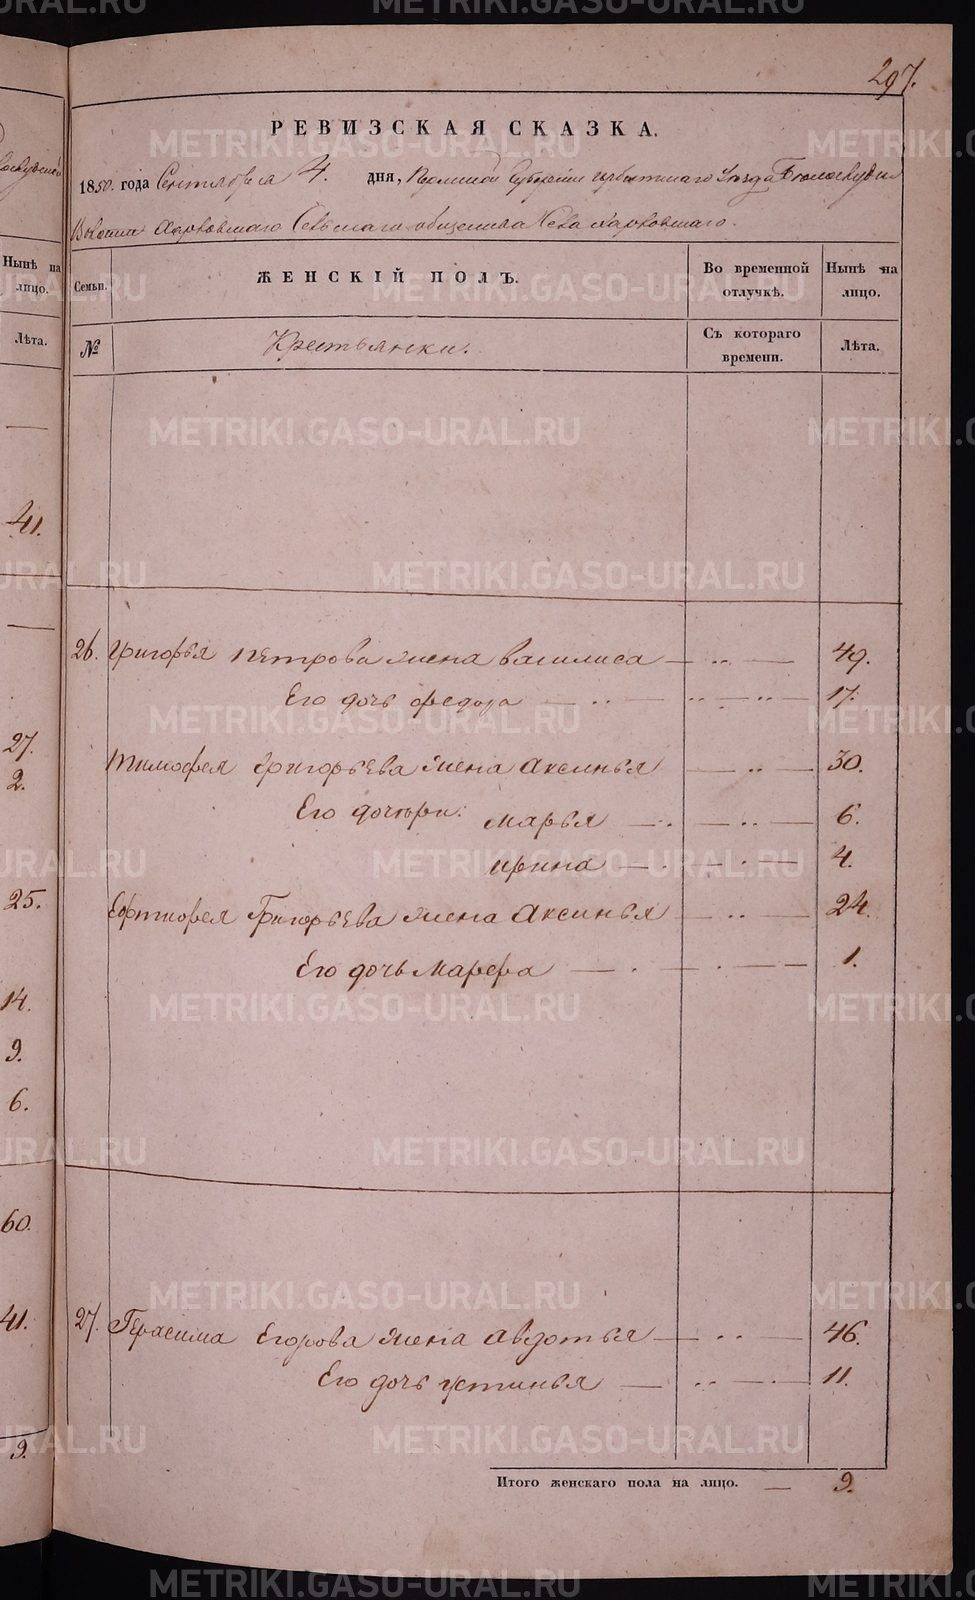 297.
РЕВИЗСКАЯ СКАЗКА.
1850. года Сентября 4. дня, Пермской Губернии Ирбитскаго Уезда Белослудской
Волости Харловскаго Сельскаго общества Села Харловскаго.
Семьи.
ЖЕНСКІЙ ПОЛЪ.
Во временной отлучкѣ.
Нынѣ на лицо.
№
Крестьянки.
Съ котораго времени.
Лѣта.
26. Григорья Петрова жена Василиса 49.
Его дочь Федора 17.
Тимофея Григорьева жена Аксинья 30.
Его дочери: Марья 6.
Ирина 4.
Григорьева жена Аксинья 24.
Его дочь Марфа 1.
27. Герасима Егорова жена Авдотья 46.
Его дочь Устинья 11.
Итого женскаго пола на лицо. 9.
Нынѣ на лицо.
Лѣта.
41.
27.
2.
25.
14.
9.
6.
60.
41.
9.
METRIKI.GASO-URAL.RU